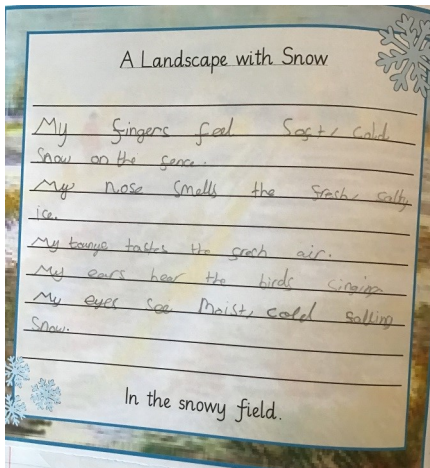 A Landscape with Snow
My fingers feel Soft, cold
Snow on the fence.
My nose Smells the fresh, salty
ice.
My tounge tastes the fresh air.
My ears hear the birds singing
My eyes see Moist, cold falling
Snow.
In the snowy field.